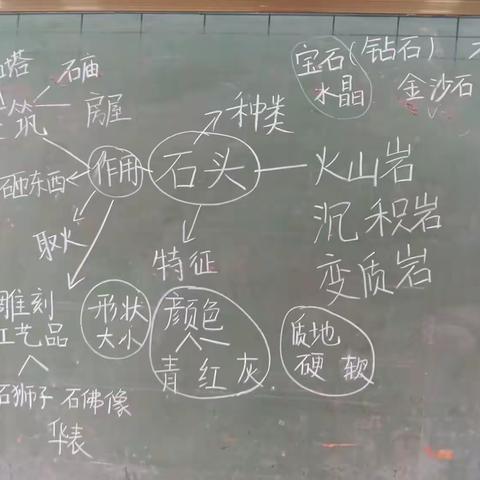 宝石(钻石)
水晶
金沙石
塔
石庙
筑
房屋
种类
砸东西
作用
石头
火山岩
沉积岩
变质岩
取火
特征
雕刻
工艺品
形状
大小
颜色
青 红 灰
质地
硬 软
石狮子 石佛像
华表